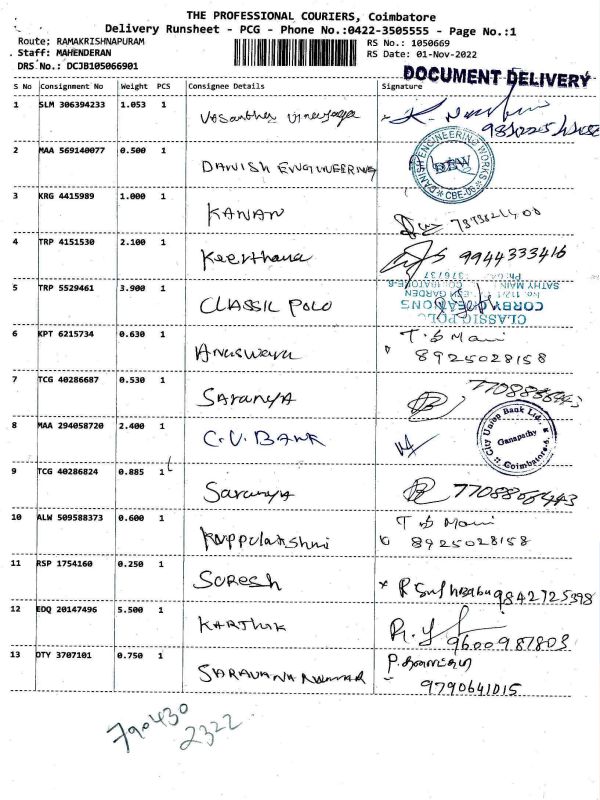 THE PROFESSIONAL COURIERS, Coimbatore
Delivery Runsheet - PCG - Phone No.:0422-3505555 - Page No.:1
Route: RAMAKRISHNAPURAM RS No.: 1050669
Staff: MAHENDERAN RS Date: 01-Nov-2022
DRS No.: DCJB105066901
DOCUMENT DELIVERY
S No Consignment No Weight PCS Consignee Details Signature
1 SLM 306394233 1.053 1 Vasantha Vinayaga
2 MAA 569140077 0.500 1 DANISH ENGINEERING
DANISH ENGINEERING WORKS CBE-06
3 KRG 4415989 1.000 1 KANAN
4 TRP 4151530 2.100 1 Keerthana 9944333416
5 TRP 5529461 3.900 1 CLASSIC POLO
CLASSIC POLO
CORBY CREATIONS
SATHY MAIN
6 KPT 6215734 0.630 1 T. B Mani
8925028158
7 TCG 40286687 0.530 1 SARANYA
8 MAA 294058720 2.400 1 C.U. BANK
City Union Bank Ltd. Ganapathy Coimbatore
9 TCG 40286824 0.885 1 Saranya
10 ALW 509588373 0.600 1 Kuppulakshmi T B Mani
8925028158
11 RSP 1754160 0.250 1 SURESH 9842725398
12 EDQ 20147496 5.500 1 KARTHIK 9600987803
13 DTY 3707101 0.750 1 SARAVANA KUMAR
9790641015
790430
2322